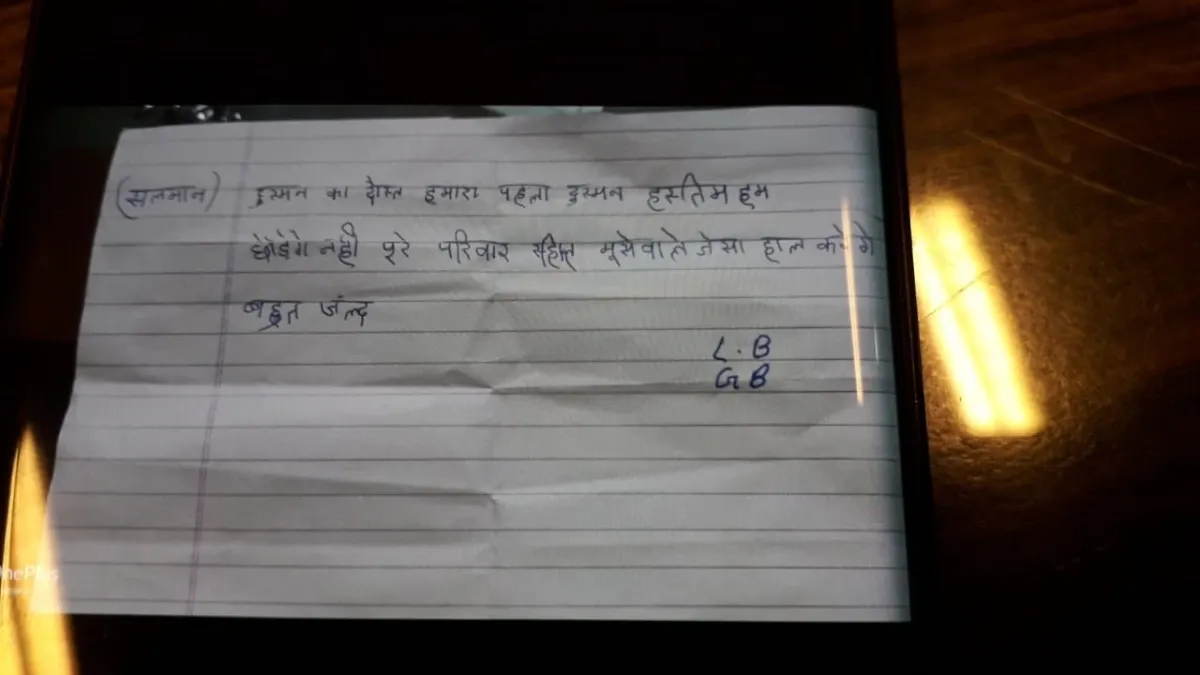 (सलमान) दुस्मन का दोस्त हमारा पहला दुस्मन हस्तिम हम
छोडेंगे नही पूरे परिवार सहित मूसेवाले जेसा हाल करेगे
बहुत जंल्द
L.B
GB